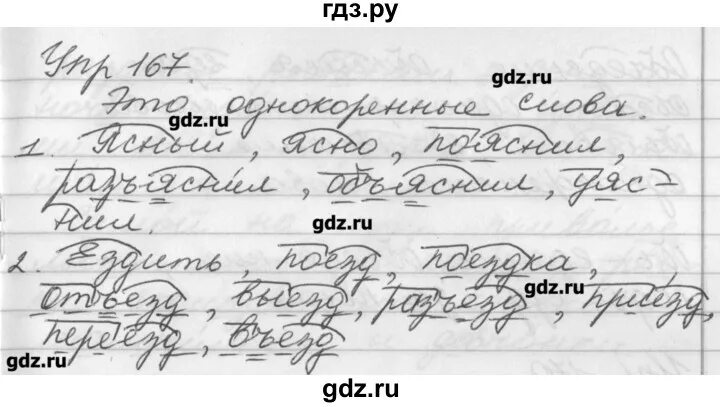 гдз.ру
Упр 167.
gdz.ru
Это однокоренные слова.
gdz.ru
1. Ясный, ясно, пояснил,
разъяснил, объяснил, уяс-
нил.
gdz.ru
2. Ездить, поезд, поездка,
отъезд, выезд, разъезд, приезд,
gdz.ru
переезд, въезд
gdz.ru
gdz.ru